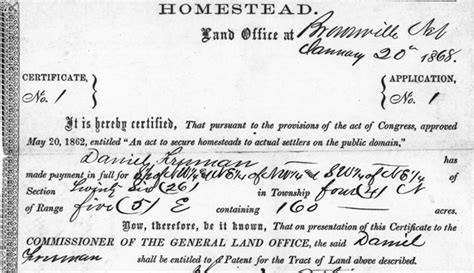 HOMESTEAD.
Land Office at Brownville Neb
January 20th 1868.
CERTIFICATE, No. 1
APPLICATION, No. 1
It is hereby certified, That pursuant to the provisions of the act of Congress, approved
May 20, 1862, entitled "An act to secure homesteads to actual settlers on the public domain,"
Daniel Freeman has
made payment in full for of NW¼ of NE¼ of NW¼ & SW¼ of NE¼
Section twenty six (26) in Township four (4) N
of Range five (5) E containing 160 acres.
Now, therefore, be it known, That on presentation of this Certificate to the
COMMISSIONER OF THE GENERAL LAND OFFICE, the said Daniel
Freeman shall be entitled to a Patent for the Tract of Land above described.